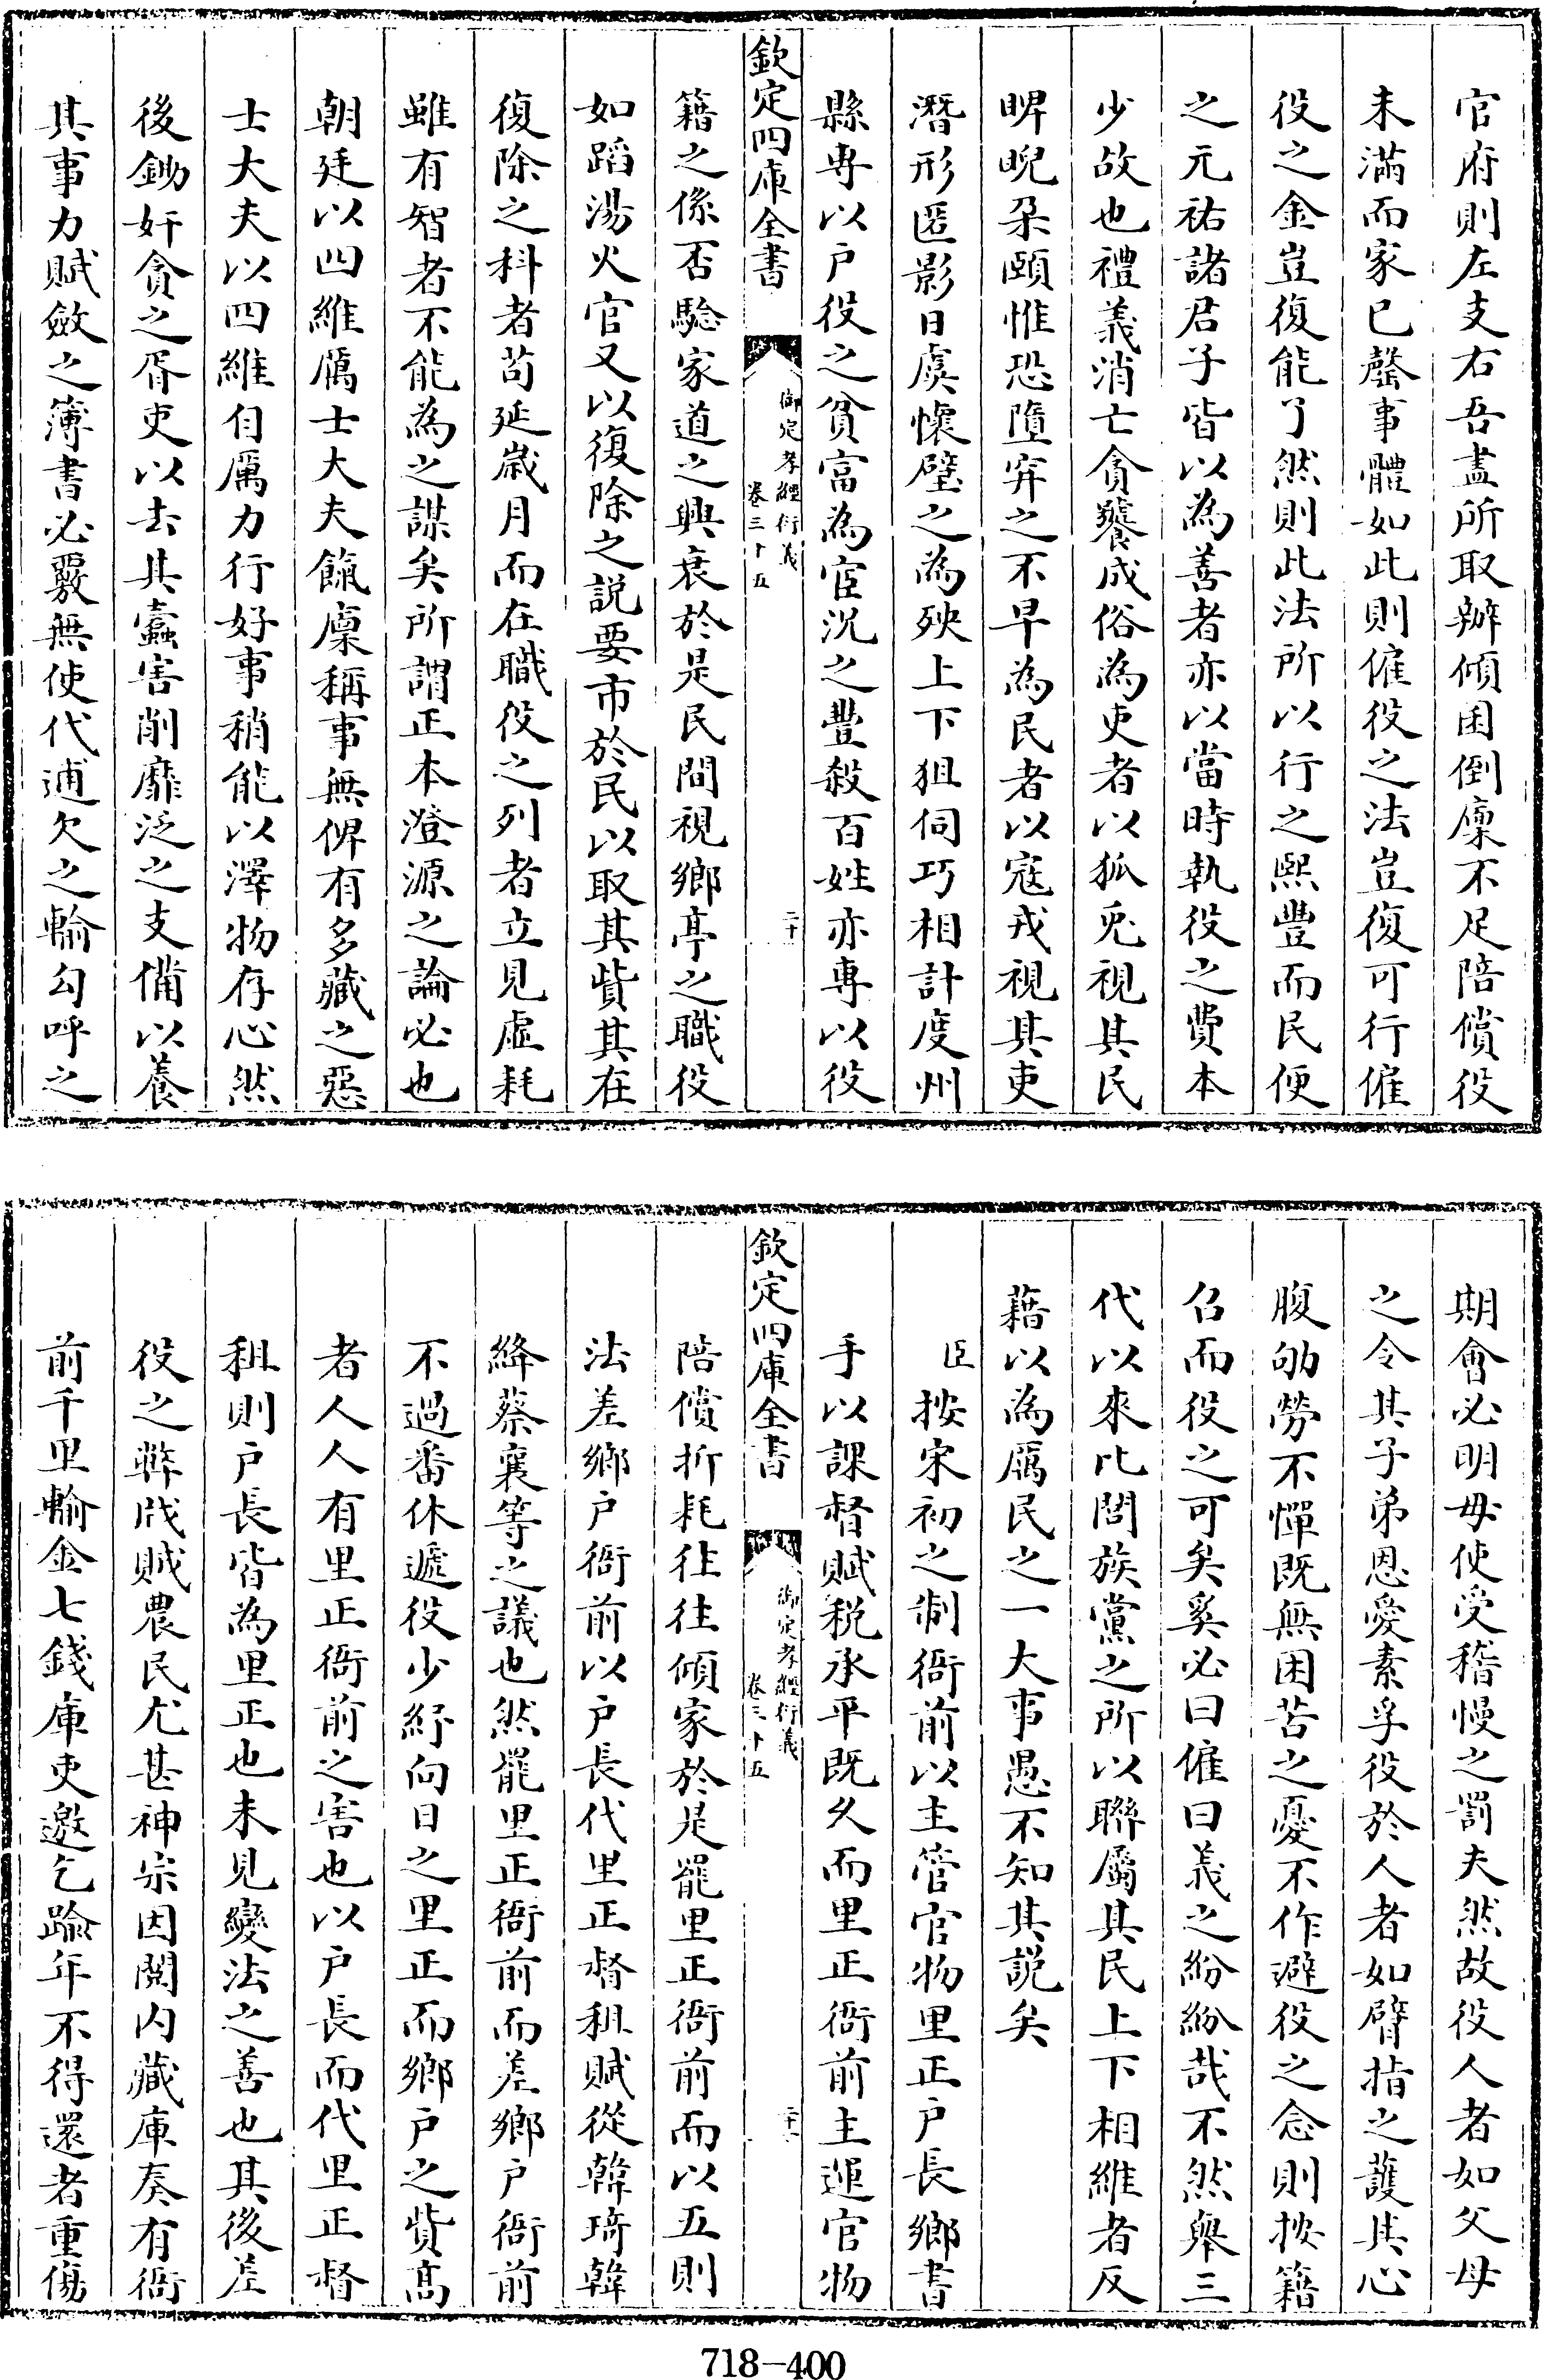 官府則左支右吾盡所取辦傾囷倒廩不足陪償役
未滿而家已罄事體如此則僱役之法豈復可行僱
役之金豈復能了然則此法所以行之熙豐而民便
之元祐諸君子皆以為善者亦以當時執役之費本
少故也禮義消亡貪饕成俗為吏者以狐兎視其民
睥睨朶頤惟恐墮穽之不早為民者以寇戎視其吏
潛形匿影日虞懷璧之為殃上下狙伺巧相計度州
縣専以户役之貧富為宦況之豐殺百姓亦専以役
欽定四庫全書
御定孝經衍義
卷三十五
二十
籍之係否驗家道之興衰於是民間視鄉亭之職役
如蹈湯火官又以復除之説要市於民以取其貲其在
復除之科者苟延歳月而在職役之列者立見虛耗
雖有智者不能為之謀矣所謂正本澄源之論必也
朝廷以四維厲士大夫餼廩稱事無俾有多藏之惡
士大夫以四維自厲力行好事稍能以澤物存心然
後鋤奸貪之胥吏以去其蠹害削靡泛之支備以養
其事力賦斂之簿書必覈無使代逋欠之輸勾呼之
期會必明毋使受稽慢之罰夫然故役人者如父母
之令其子弟恩愛素孚役於人者如臂指之護其心
腹劬勞不憚既無困苦之憂不作避役之念則按籍
召而役之可矣奚必曰僱曰義之紛紛哉不然舉三
代以來比閭族黨之所以聯屬其民上下相維者反
藉以為厲民之一大事愚不知其説矣
臣按宋初之制衙前以主管官物里正户長鄉書
手以課督賦税承平既久而里正衙前主運官物
欽定四庫全書
御定孝經衍義
卷三十五
二十一
陪償折耗往往傾家於是罷里正衙前而以五則
法差鄉户衙前以户長代里正督租賦從韓琦韓
絳蔡襄等之議也然罷里正衙前而差鄉户衙前
不過番休遞役少紓向日之里正而鄉户之貲髙
者人人有里正衙前之害也以户長而代里正督
租則户長皆為里正也未見變法之善也其後差
役之弊戕賊農民尤甚神宗因閲内藏庫奏有衙
前千里輸金七錢庫吏邀乞踰年不得還者重傷
718-400